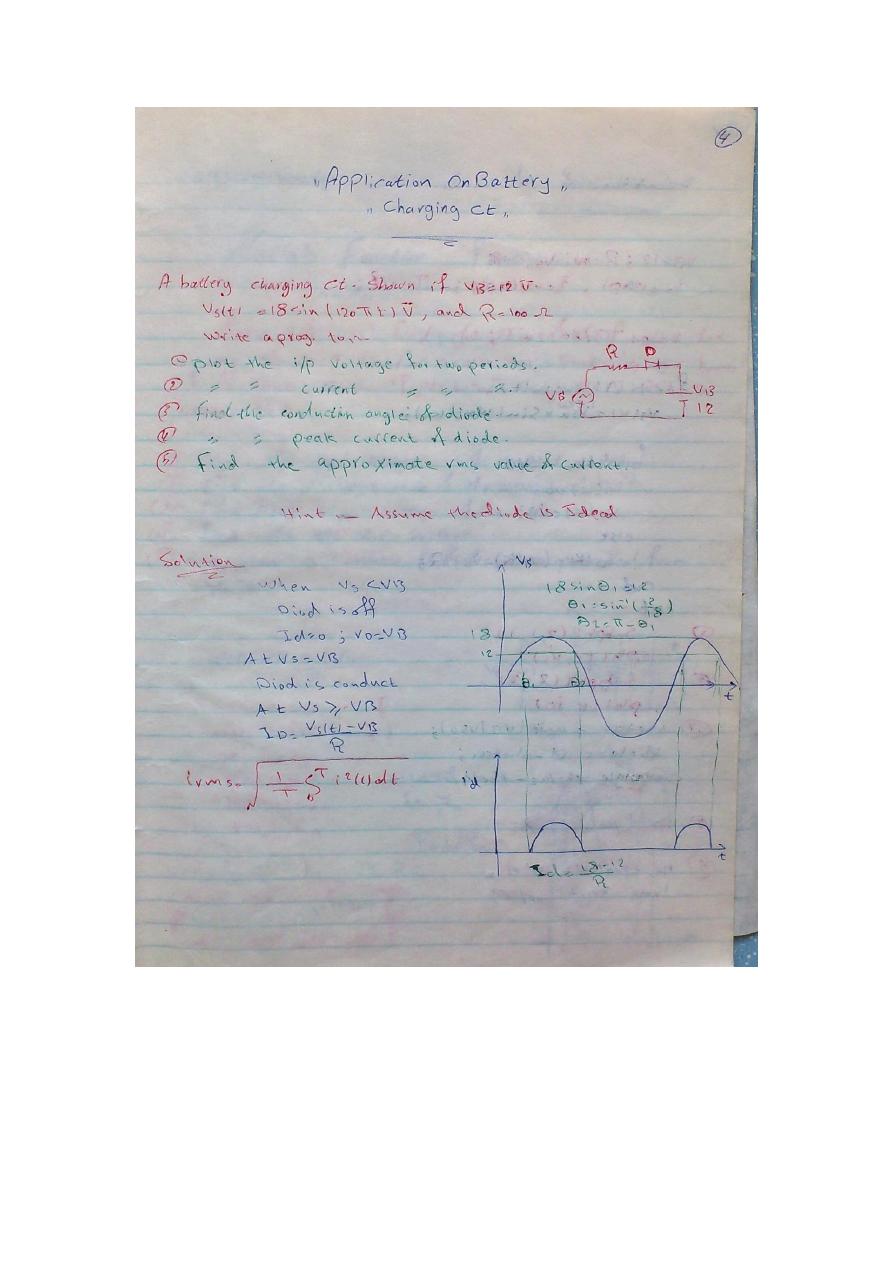 4
" Application On Battery "
" Charging Ct "
A battery charging Ct. Shown if VB=12 V
Vs(t) =18 sin (120πt) V , and R=100 Ω
Write a prog. to:-
① plot the i/p voltage for two periods.
② " " current " " ".
③ find the conduction angle of diode
④ " " peak current of diode.
⑤ Find the approximate rms value of current.
R D
VS
VB
12
Hint - Assume the diode is Ideal
Solution
When Vs <VB
Diod is off
Id=0 ; Vo=VB
At Vs=VB
Diod is conduct
At Vs ≥ VB
ID= Vs(t)-VB / R
irms= √ 1/T ∫0^T i²(t)dt
VS
18 sin θ1 =12
θ1 = sin⁻¹(12/18)
θ2 = π - θ1
18
12
θ1 θ2
t
id
t
Id= 18-12 / R